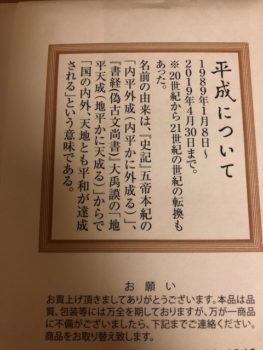 平成について
1989年1月8日〜
2019年4月30日まで。
※20世紀から21世紀の世紀の転換も
あった。
名前の由来は、『史記』五帝本紀の
「内平外成（内平かに外成る）」、
『書経（偽古文尚書）』大禹謨の「地
平天成（地平かに天成る）」からで
「国の内外、天地とも平和が達成
される」という意味である。
お願い
お買上げ頂きましてありがとうございます。本品は品
質、包装等には万全を期しておりますが、万が一商品
に不備がございましたら、下記までご連絡ください。
商品をお取り替え致します。